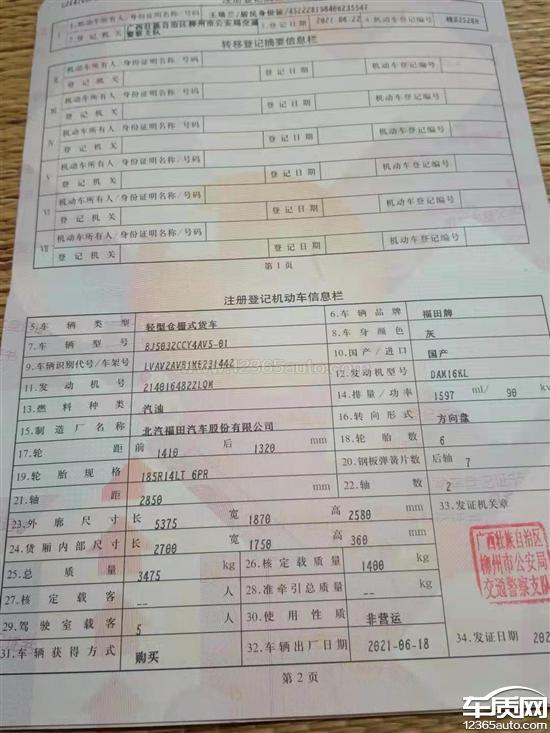 注册登记摘要信息栏
1.机动车所有人/身份证明名称/号码 王瑞兰/居民身份证/452228198406235541
广西壮族自治区柳州市公安局交通警察支队
2.登记机关 3.登记日期 2021-06-22 4.机动车登记编号
转移登记摘要信息栏
Ⅱ 机动车所有人/身份证明名称/号码
登记机关 登记日期 机动车登记编号
Ⅲ 机动车所有人/身份证明名称/号码
登记机关 登记日期 机动车登记编号
Ⅳ 机动车所有人/身份证明名称/号码
登记机关 登记日期 机动车登记编号
Ⅴ 机动车所有人/身份证明名称/号码
登记机关 登记日期 机动车登记编号
Ⅵ 机动车所有人/身份证明名称/号码
登记机关 登记日期 机动车登记编号
Ⅶ 机动车所有人/身份证明名称/号码
登记机关 登记日期 机动车登记编号
第1页
注册登记机动车信息栏
5.车辆类型 轻型仓栅式货车 6.车辆品牌 福田牌
7.车辆型号 BJ5032CCY4AV5-01 8.车身颜色 灰
9.车辆识别代号/车架号 LVAV2AVB1ME231442 10.国产/进口 国产
11.发动机号 21401648ZZLQM 12.发动机型号 DAM16KL
13.燃料种类 汽油 14.排量/功率 1597 ml/ 90 kw
15.制造厂名称 北汽福田汽车股份有限公司 16.转向形式 方向盘
17.轮距 前 1410 后 1320 mm 18.轮胎数 6
19.轮胎规格 185R14LT 6PR 20.钢板弹簧片数 后轴 7
21.轴距 2850 mm 22.轴数 2
23.外廓尺寸 长 5375 宽 1870 高 2580 mm 33.发证机关章
24.货厢内部尺寸 长 2700 宽 1750 高 360 mm
25.总质量 3475 kg 26.核定载质量 1400 kg
27.核定载客 -- 人 28.准牵引总质量 -- kg
29.驾驶室载客 5 人 30.使用性质 非营运
31.车辆获得方式 购买 32.车辆出厂日期 2021-06-18 34.发证日期
广西壮族自治区
柳州市公安局
交通警察支队
第2页
www.12365auto.com
车质网
12365auto.com